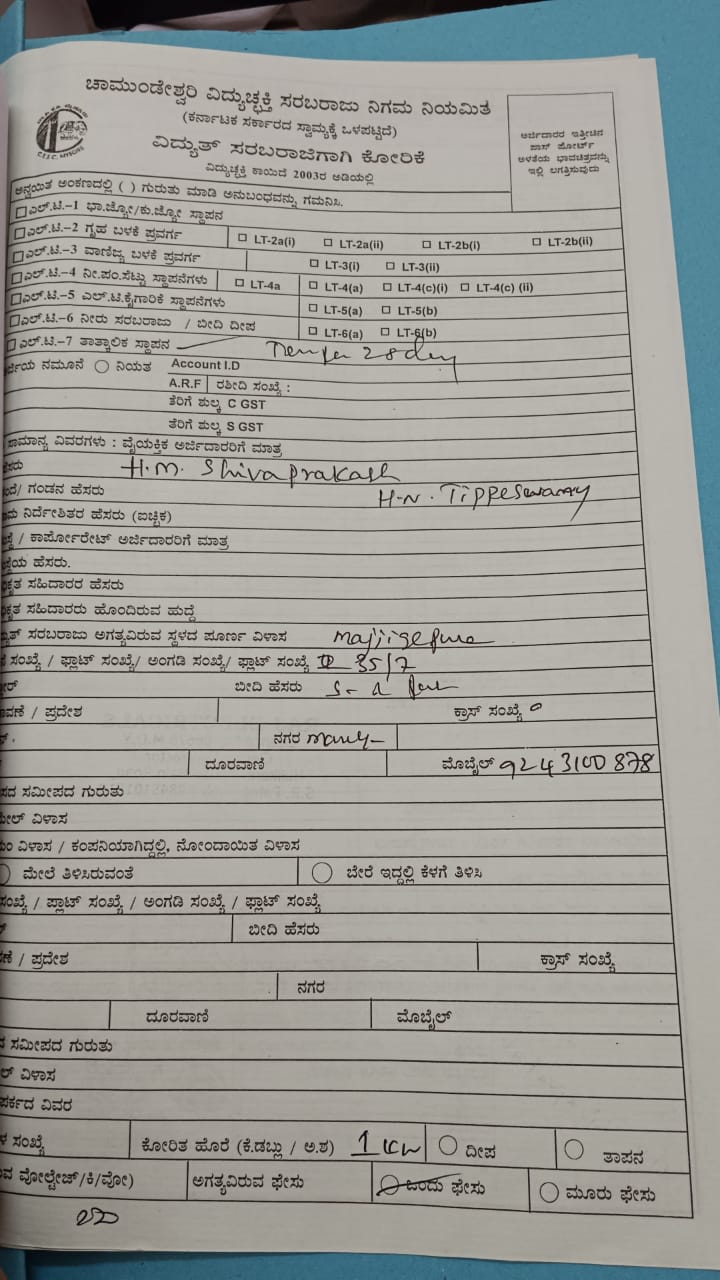 ಚಾಮುಂಡೇಶ್ವರಿ ವಿದ್ಯುಚ್ಛಕ್ತಿ ಸರಬರಾಜು ನಿಗಮ ನಿಯಮಿತ
(ಕರ್ನಾಟಕ ಸರ್ಕಾರದ ಸ್ವಾಮ್ಯಕ್ಕೆ ಒಳಪಟ್ಟಿದೆ)
ವಿದ್ಯುತ್ ಸರಬರಾಜಿಗಾಗಿ ಕೋರಿಕೆ
ವಿದ್ಯುಚ್ಛಕ್ತಿ ಕಾಯಿದೆ 2003ರ ಅಡಿಯಲ್ಲಿ
C.E.S.C. MYSORE
ಅರ್ಜಿದಾರರ ಇತ್ತೀಚಿನ
ಪಾಸ್ ಪೋರ್ಟ್
ಅಳತೆಯ ಭಾವಚಿತ್ರವನ್ನು
ಇಲ್ಲಿ ಲಗತ್ತಿಸುವುದು
ಅನ್ವಯಿತ ಅಂಕಣದಲ್ಲಿ ( ) ಗುರುತು ಮಾಡಿ ಅನುಬಂಧವನ್ನು ಗಮನಿಸಿ.
ಎಲ್.ಟಿ.-1 ಭಾ.ಜ್ಯೋ/ಕು.ಜ್ಯೋ ಸ್ಥಾಪನ
ಎಲ್.ಟಿ.-2 ಗೃಹ ಬಳಕೆ ಪ್ರವರ್ಗ LT-2a(i) LT-2a(ii) LT-2b(i) LT-2b(ii)
ಎಲ್.ಟಿ.-3 ವಾಣಿಜ್ಯ ಬಳಕೆ ಪ್ರವರ್ಗ LT-3(i) LT-3(ii)
ಎಲ್.ಟಿ.-4 ನೀ.ಪಂ.ಸೆಟ್ಟು ಸ್ಥಾಪನೆಗಳು LT-4a LT-4(a) LT-4(c)(i) LT-4(c) (ii)
ಎಲ್.ಟಿ.-5 ಎಲ್.ಟಿ.ಕೈಗಾರಿಕೆ ಸ್ಥಾಪನೆಗಳು LT-5(a) LT-5(b)
ಎಲ್.ಟಿ.-6 ನೀರು ಸರಬರಾಜು / ಬೀದಿ ದೀಪ LT-6(a) LT-6(b)
ಎಲ್.ಟಿ.-7 ತಾತ್ಕಾಲಿಕ ಸ್ಥಾಪನ 28 day
ರ್ಜಿಯ ನಮೂನೆ ನಿಯತ Account I.D
A.R.F ರಶೀದಿ ಸಂಖ್ಯೆ :
ತೆರಿಗೆ ಶುಲ್ಕ C GST
ತೆರಿಗೆ ಶುಲ್ಕ S GST
ಸಾಮಾನ್ಯ ವಿವರಗಳು : ವೈಯಕ್ತಿಕ ಅರ್ಜಿದಾರರಿಗೆ ಮಾತ್ರ
ಹೆಸರು H.M. Shivaprakash
ಂದೆ/ ಗಂಡನ ಹೆಸರು H.N. Tippeswamy
ಾಮ ನಿರ್ದೇಶಿತರ ಹೆಸರು (ಐಚ್ಛಿಕ)
ಸ್ಥೆ / ಕಾರ್ಪೋರೇಟ್ ಅರ್ಜಿದಾರರಿಗೆ ಮಾತ್ರ
ಸ್ಥೆಯ ಹೆಸರು.
ಿಕೃತ ಸಹಿದಾರರ ಹೆಸರು
ಿಕೃತ ಸಹಿದಾರರು ಹೊಂದಿರುವ ಹುದ್ದೆ
ದ್ಯುತ್ ಸರಬರಾಜು ಅಗತ್ಯವಿರುವ ಸ್ಥಳದ ಪೂರ್ಣ ವಿಳಾಸ Majjigepura
ೆ ಸಂಖ್ಯೆ / ಫ್ಲಾಟ್ ಸಂಖ್ಯೆ/ ಅಂಗಡಿ ಸಂಖ್ಯೆ/ ಫ್ಲಾಟ್ ಸಂಖ್ಯೆ 35/7
ೋರ್ ಬೀದಿ ಹೆಸರು
ಾವಣೆ / ಪ್ರದೇಶ ಕ್ರಾಸ್ ಸಂಖ್ಯೆ
ನಗರ
ದೂರವಾಣಿ ಮೊಬೈಲ್ 9243100878
ಸದ ಸಮೀಪದ ಗುರುತು
ಮೇಲ್ ವಿಳಾಸ
ಂ ವಿಳಾಸ / ಕಂಪನಿಯಾಗಿದ್ದಲ್ಲಿ, ನೋಂದಾಯಿತ ವಿಳಾಸ
ಮೇಲೆ ತಿಳಿಸಿರುವಂತೆ ಬೇರೆ ಇದ್ದಲ್ಲಿ ಕೆಳಗೆ ತಿಳಿಸಿ
ಸಂಖ್ಯೆ / ಪ್ಲಾಟ್ ಸಂಖ್ಯೆ / ಅಂಗಡಿ ಸಂಖ್ಯೆ / ಫ್ಲಾಟ್ ಸಂಖ್ಯೆ
ಬೀದಿ ಹೆಸರು
ವಣೆ / ಪ್ರದೇಶ ಕ್ರಾಸ್ ಸಂಖ್ಯೆ
ನಗರ
ದೂರವಾಣಿ ಮೊಬೈಲ್
ದ ಸಮೀಪದ ಗುರುತು
ಲ್ ವಿಳಾಸ
ಪರ್ಕದ ವಿವರ
ಳ ಸಂಖ್ಯೆ ಕೋರಿತ ಹೊರೆ (ಕೆ.ಡಬ್ಲು / ಅ.ಶ) 1 KW ದೀಪ ತಾಪನ
ುವ ವೋಲ್ಟೇಜ್/ಕಿ/ವೋ) ಅಗತ್ಯವಿರುವ ಫೇಸು ಒಂದು ಫೇಸು ಮೂರು ಫೇಸು